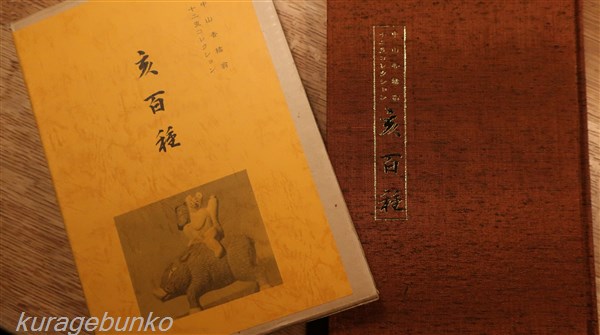 十二支コレクション
亥百種
十二支コレクション
亥百種
kuragebunko